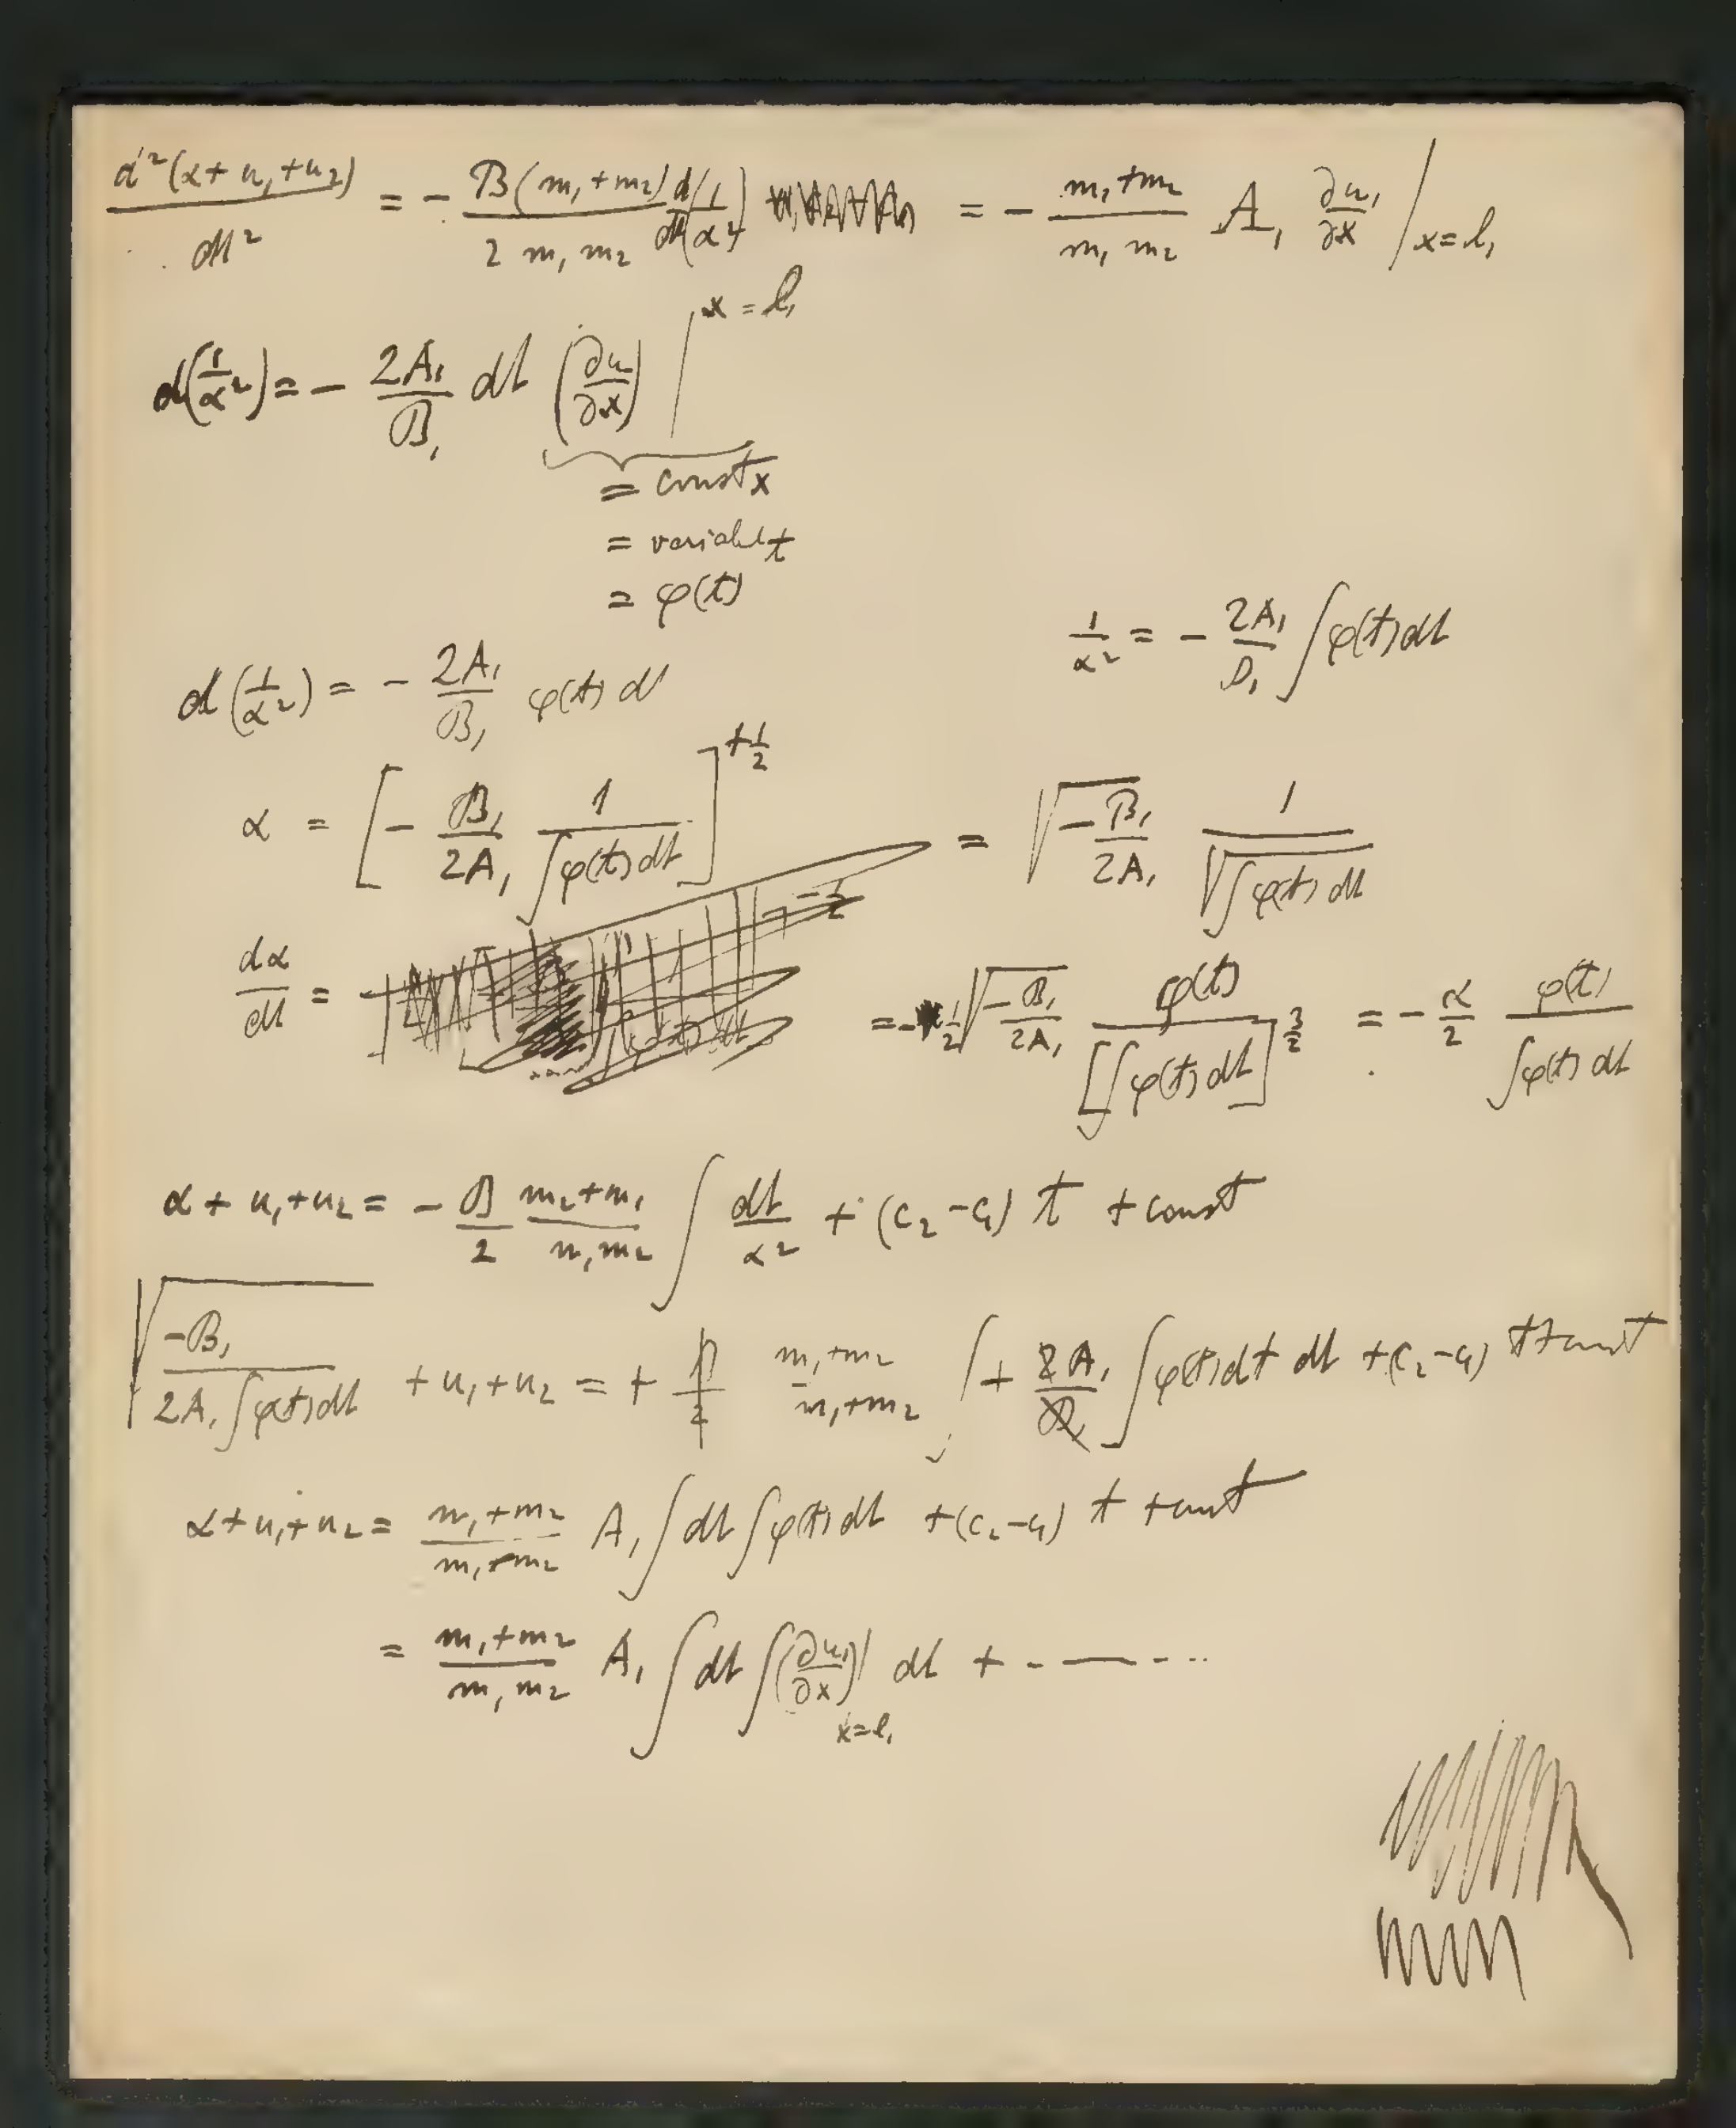 d²(α+u₁+u₂)/dt² = − B(m₁+m₂)/(2 m₁ m₂) d/dt(1/α²) = − (m₁+m₂)/(m₁ m₂) A₁ ∂u₁/∂x |x=l₁
d(1/α²) = − 2A₁/B₁ dt (∂u/∂x) |x=l₁
= const x
= variabel t
= φ(t)
1/α² = − 2A₁/B₁ ∫φ(t)dt
d(1/α²) = − 2A₁/B₁ φ(t) dt
α = [− B₁/2A₁ 1/∫φ(t)dt]^+½ = √(−B₁/2A₁) 1/√∫φ(t)dt
dα/dt = = −½ √(−B₁/2A₁) φ(t)/[∫φ(t)dt]^3/2 = − α/2 φ(t)/∫φ(t)dt
α + u₁+u₂ = − B/2 (m₂+m₁)/(m₁m₂) ∫ dt/α² + (c₂−c₁) t + const
√(−B₁/(2A₁∫φ(t)dt)) + u₁+u₂ = + B/2 (m₁+m₂)/(m₁+m₂) ∫ + 2A₁/B₁ ∫φ(t)dt dt + (c₂−c₁) t + const
α+u₁+u₂ = (m₁+m₂)/(m₁+m₂) A₁ ∫dt ∫φ(t)dt + (c₂−c₁) t + const
= (m₁+m₂)/(m₁ m₂) A₁ ∫dt ∫(∂u₁/∂x)|x=l₁ dt + - — - ..